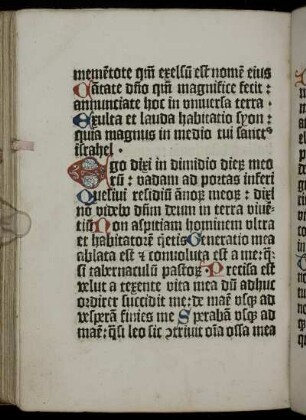 mementote qm̄ excelsū est nomē eius
Cātate dn̄o qm̄ magnifice fecit :
annunciate hoc in vniuersa terra .
Exulta et lauda habitatio syon :
quia magnus in medio tui sanctꝰ
israhel .
Ego dixi in dimidio dieꝝ meo
rū : vadam ad portas inferi
Quesiui residuū ānoꝝ meoꝝ : dixi
nō videbo dn̄m deum in terra viuē-
tiū Non aspiciam hominem vltra
et habitatorē quietis Generatio mea
ablata est et conuoluta est a me : q̄si
si tabernaculū pastoꝝ . Precisa est
velut a texente vita mea dū adhuc
ordirer succidit me : de mane vsqꝫ ad
vesperā finies me Sperabā vsqꝫ ad
mane : q̄si leo sic ꝯtriuit oīa ossa mea